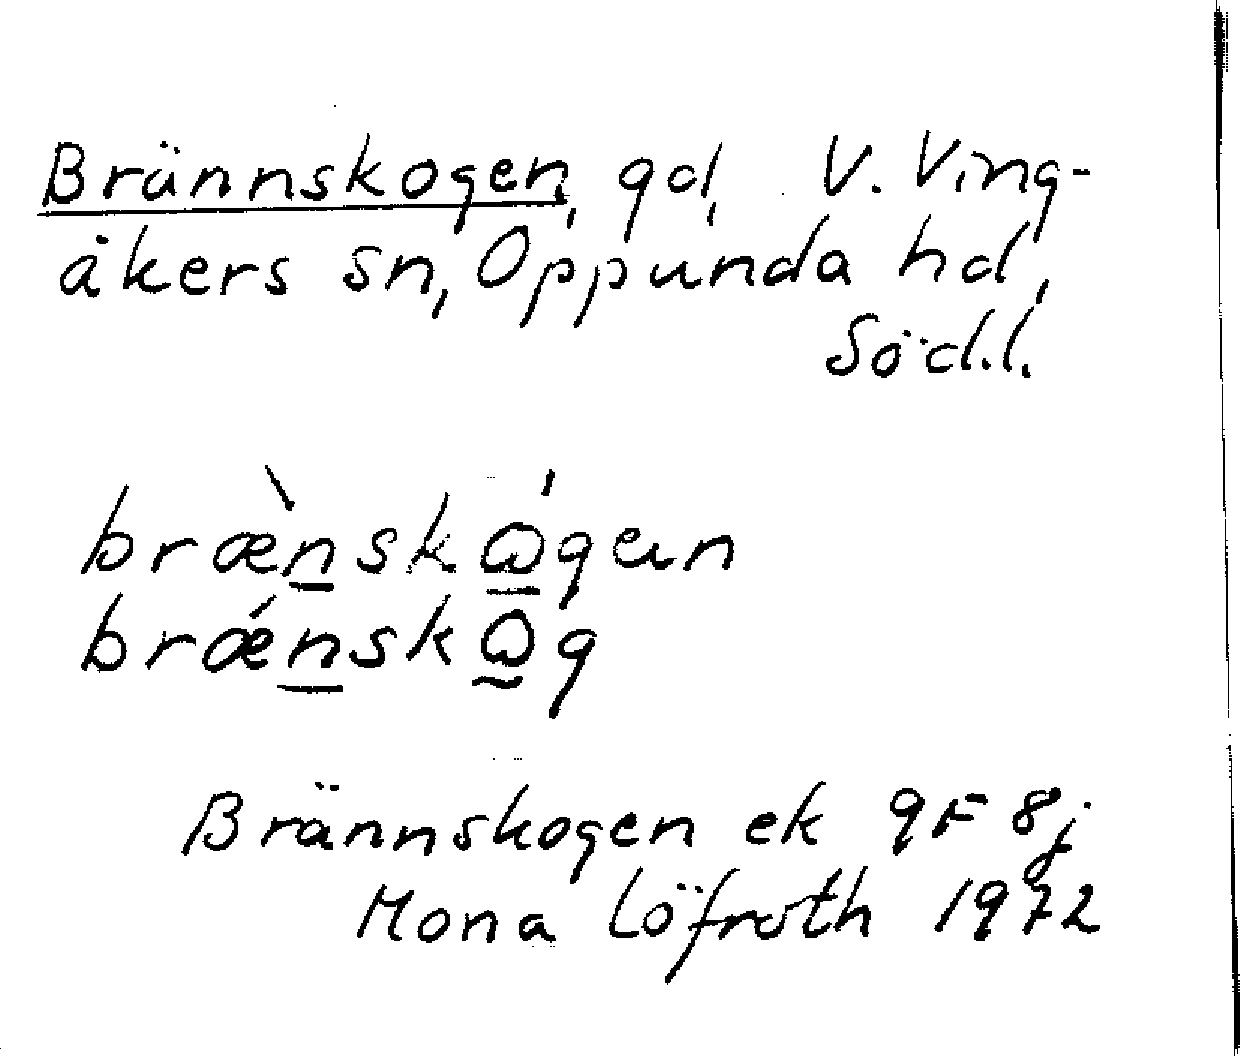 Brännskogen, gd, V. Ving-
åkers sn, Oppunda hd,
Södl.
bræ̀nskǫ́gen
brǽnskog
Brännskogen ek 9F 8j
Mona Löfroth 1972